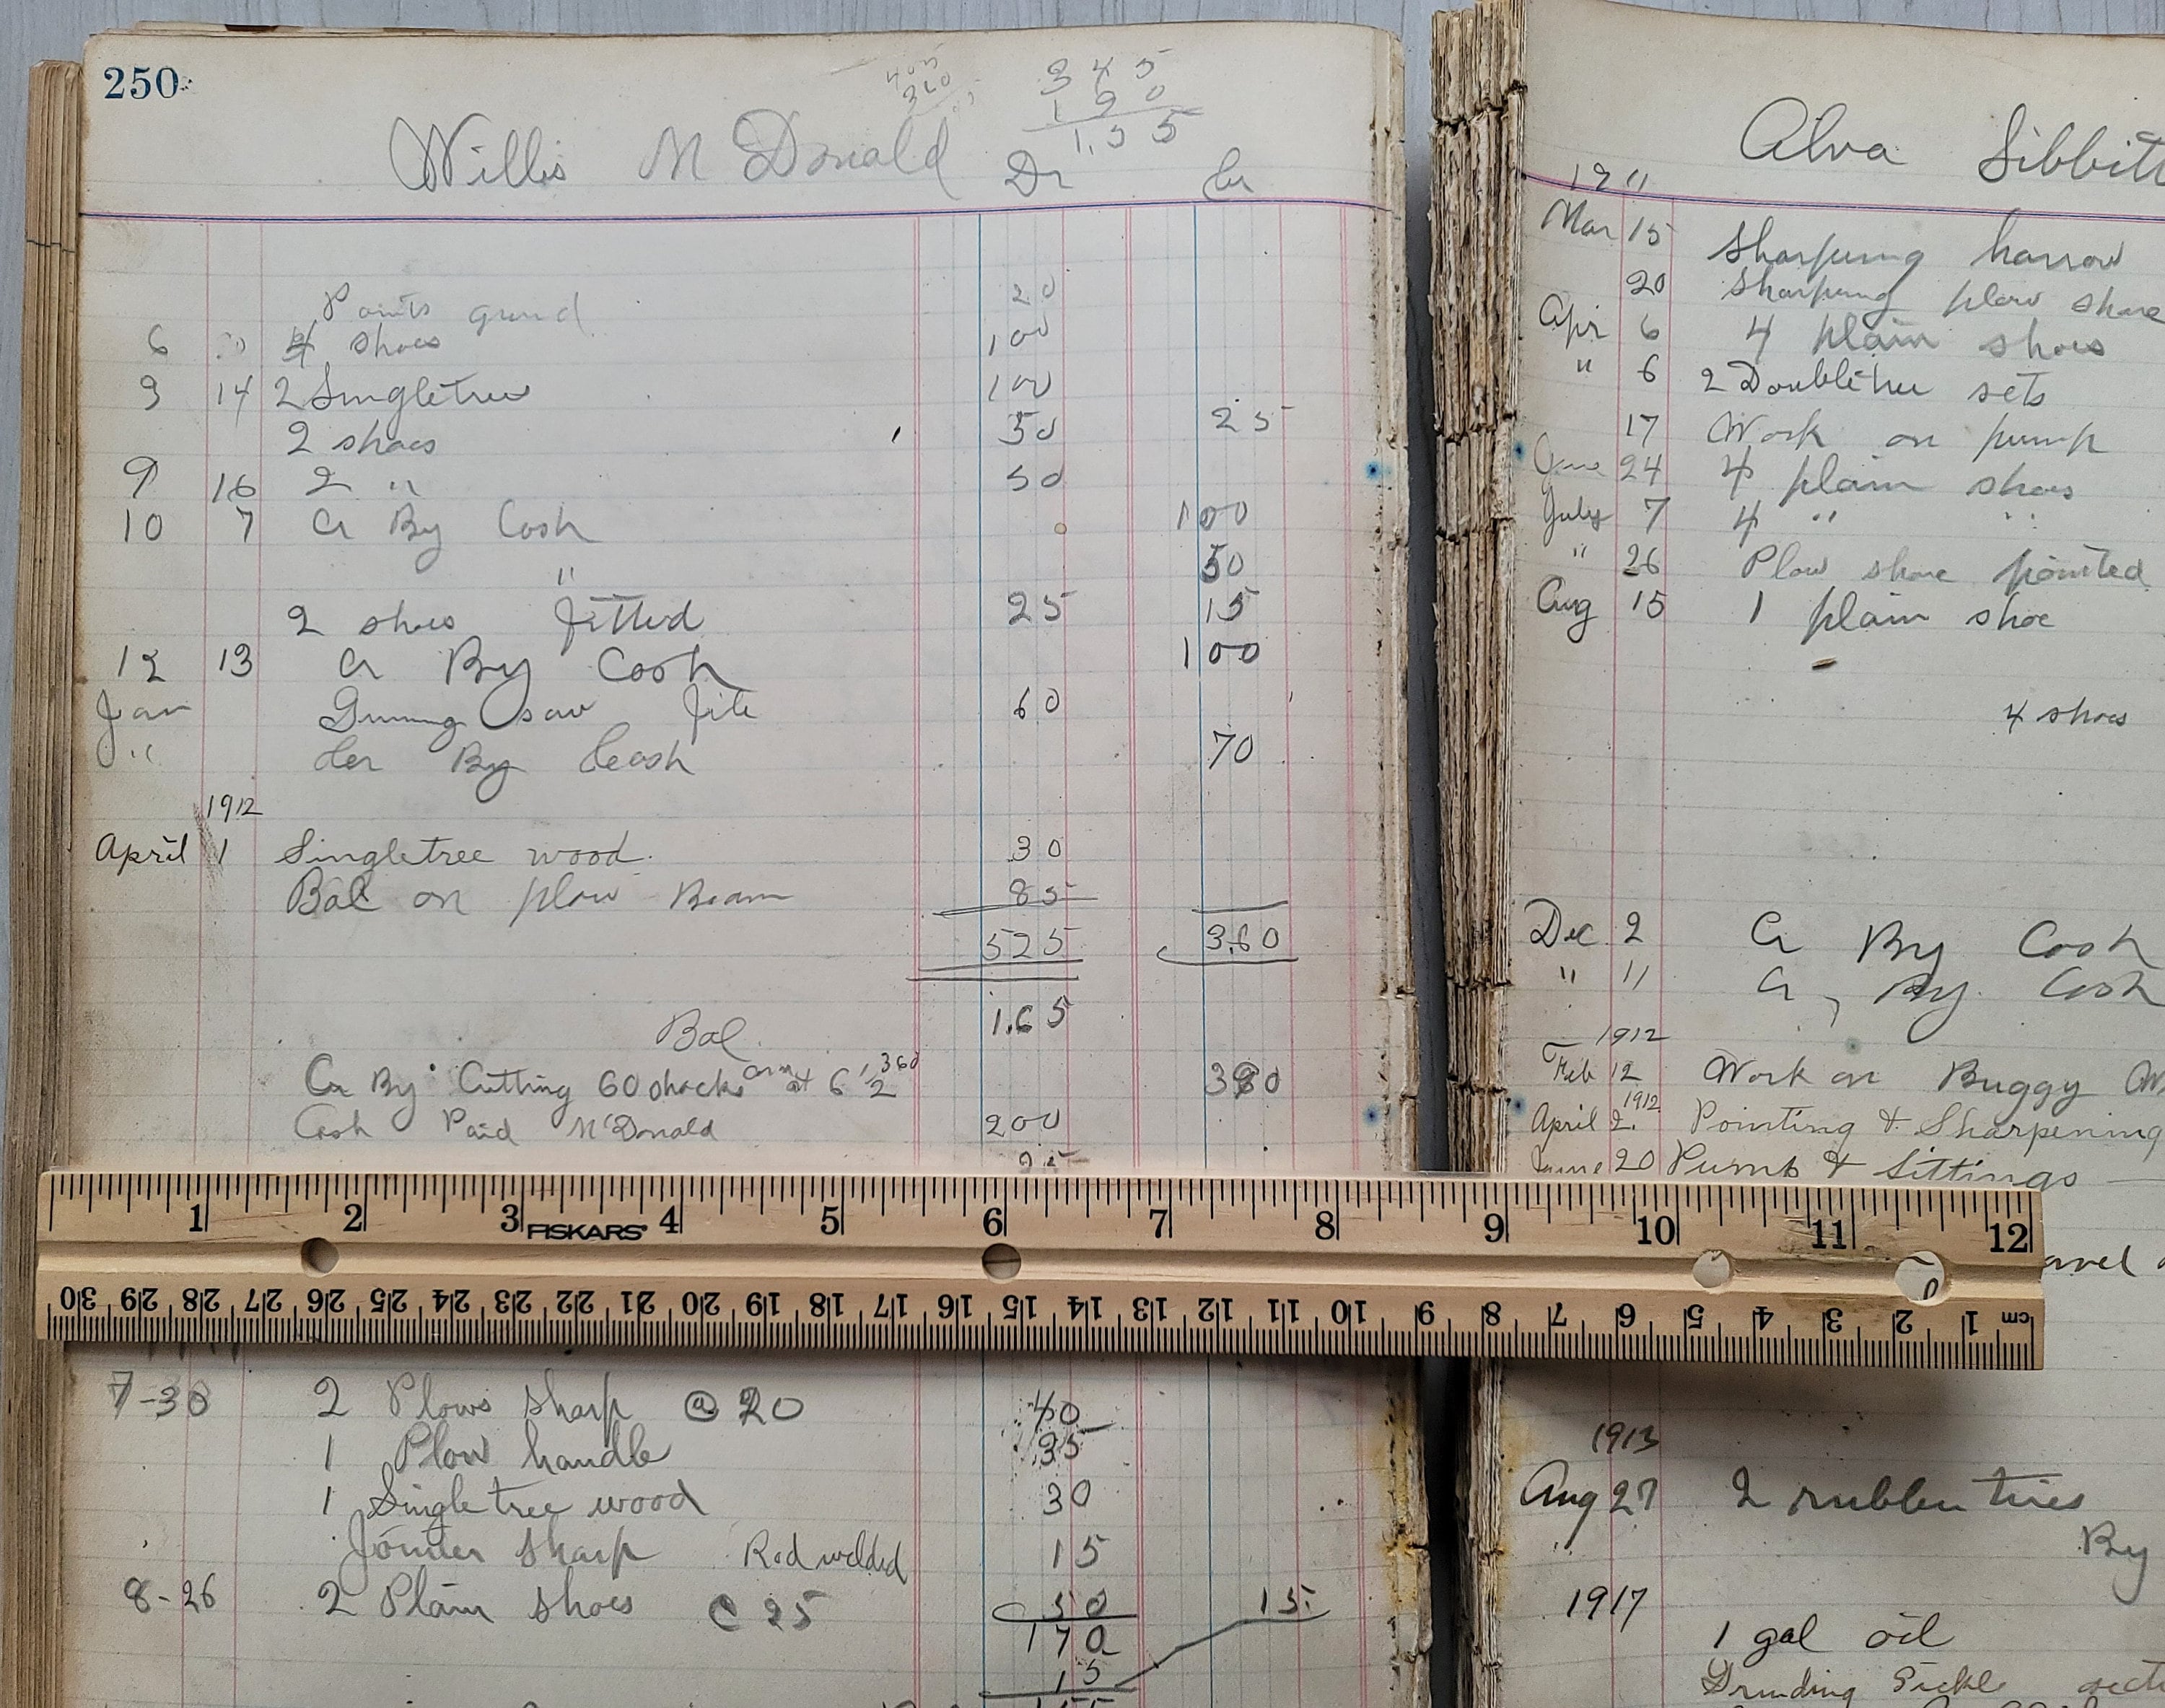 250
345
190
1.55
Willis McDonald Dr Cr
Points grind 20
6 4 shoes 100
9 14 2 Singletree 100
2 shoes 50 25
9 16 2 " 50
10 7 Cr By Cash 100
" 50
2 shoes fitted 25 15
12 13 Cr By Cash 100
Jan Gumming saw file 60
" By Cash 70
1912
April 1 Singletree wood. 30
Bal on plow Beam 85
525 3.60
Bal 1.65
Cr By Cutting 60 shocks corn at 6 1/2 360
Cash Paid McDonald 200
25
1 2 3 FISKARS 4 5 6 7 8 9 10 11 12
30 29 28 27 26 25 24 23 22 21 20 19 18 17 16 15 14 13 12 11 10 9 8 7 6 5 4 3 2 1 cm
7-30 2 Plows sharp @ 20 40
1 Plow handle 35
1 Singletree wood 30
Jointer sharp Rod welded 15
8-26 2 Plain shoes @ 25 50 15
170
15
155
Alva Sibbitt
1911
Mar 15 Sharpening harrow
20 Sharpening plow share
Apr 6 4 plain shoes
" 6 2 Doubletree sets
17 Work on pump
June 24 4 plain shoes
July 7 4 " "
" 26 Plow share pointed
Aug 15 1 plain shoe
4 shoes
Dec 2 Cr By Cash
" 11 Cr By Cash
1912
Feb 12 Work on Buggy
1912
April 2. Pointing & Sharpening
June 20 Pump & fittings
1913
Aug 27 2 rubber tires
" By
1917
1 gal oil
Grinding Sickle